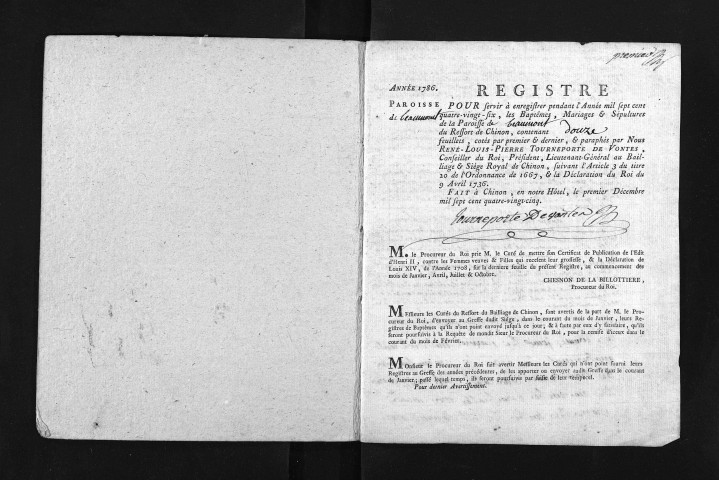 premier
ANNÉE 1786.
REGISTRE
PAROISSE
de Beaumont
POUR servir à enregistrer pendant l'Année mil sept cent
quatre-vingt-six, les Baptêmes, Mariages & Sépultures
de la Paroisse de Beaumont
du Ressort de Chinon, contenant douze
feuillets, cotés par premier & dernier, & paraphés par Nous
RENÉ-LOUIS-PIERRE TOURNEPORTE DE VONTES,
Conseiller du Roi, Président, Lieutenant-Général au Bail-
liage & Siége Royal de Chinon, suivant l'Article 3 du titre
20 de l'Ordonnance de 1667, & la Déclaration du Roi du
9 Avril 1736.
FAIT à Chinon, en notre Hôtel, le premier Décembre
mil sept cent quatre-vingt-cinq.
Tourneporte Devontes
M. le Procureur du Roi prie M. le Curé de mettre son Certificat de Publication de l'Edit
d'Henri II, contre les Femmes veuves & Filles qui recelent leur grossesse, & la Déclaration de
Louis XIV, de l'Année 1708, sur la derniere feuille du présent Registre, au commencement des
mois de Janvier, Avril, Juillet & Octobre.
CHESNON DE LA BILLOTTIERE,
Procureur du Roi.
Messieurs les Curés du Ressort du Bailliage de Chinon, sont avertis de la part de M. le Pro-
cureur du Roi, d'envoyer au Greffe dudit Siége, dans le courant du mois de Janvier, leurs Re-
gistres de Baptêmes qu'ils n'ont point envoyé jusqu'à ce jour; & à faute par eux d'y satisfaire, qu'ils
seront poursuivis à la Requête de mondit Sieur le Procureur du Roi, pour la remise d'iceux dans le
courant du mois de Février.
Monsieur le Procureur du Roi fait avertir Messieurs les Curés qui n'ont point fourni leurs
Registres au Greffe des années précédentes, de les apporter ou envoyer audit Greffe dans le courant
de Janvier; passé lequel temps, ils seront poursuivis par saisie de leur temporel.
Pour dernier Avertissement.